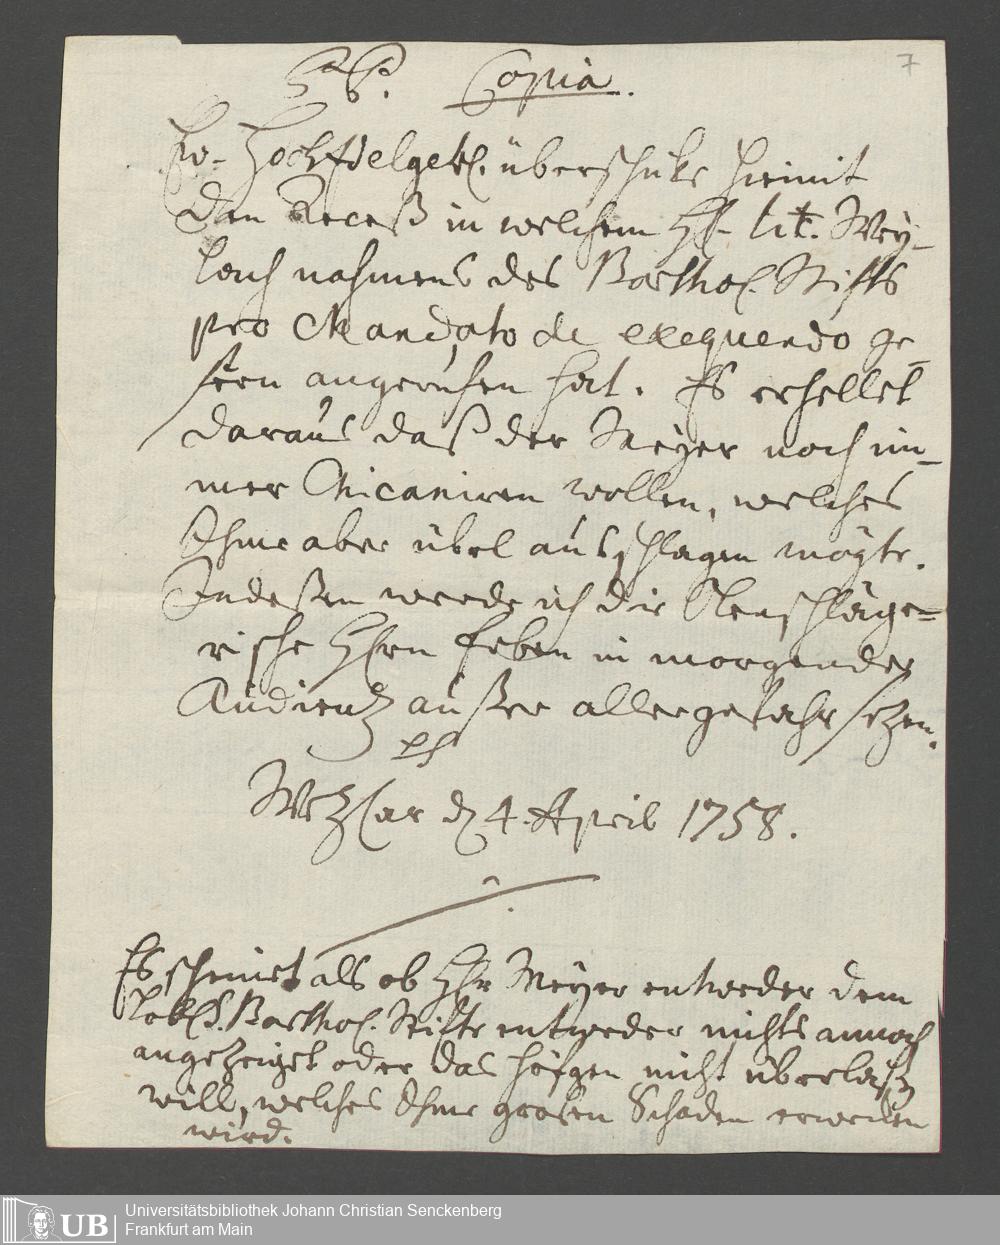 P. P. Copia.
7
Ew. HochEdelgeb. überschicke hiemit
den Receß in welchem H. Lit. Wey-
lach nahmens des Barthol. Stiffts
pro Mandato de exequendo ge-
stern angeruffen hat. Es erhellet
daraus daß der Meyer noch im-
mer Chicaniren wollen, welches
Ihme aber übel ausschlagen mögte.
Indeßen werde ich die Olenschläge-
rische Herrn Erben in morgender
Audientz außer aller gefahr sezen.
Wetzlar d 4. April 1758.
Es scheinet als ob Hr Meyer entweder dem
Löbl. Barthol. Stiffte entweder nichts annoch
angezeiget oder das höfgen nicht überlaßen
will, welches Ihme großen Schaden
wird.
Universitätsbibliothek Johann Christian Senckenberg
UB Frankfurt am Main